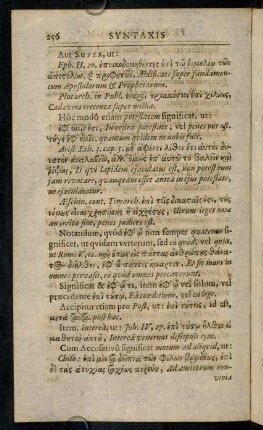 256 SYNTAXIS
Aut SUPER, ut:
Eph. II, 20. ἐποικοδομηθέντες ἐπὶ τῷ θεμελίῳ τῶν
ἀποστόλων, ϗ προφητῶν, Ædificati super fundamen-
tum Apostolorum & Prophetarum.
Plutarch. in Publ. νεκροὶ τριακόσιοι ἐπὶ χιλίοις,
Cadavera trecenta super millia.
Hôc modô etiam potestatem significat, ut:
ἐφ' ἡμῖν ἐστι, In nostra potestate, vel penes nos est.
τόγε ἐφ' ἡμῖν, quantum quidem in nobis fuit.
Arist. Eth. 3. cap. 5.
Is qui lapidem ejaculatus est, non potest eum
jam revocare, quanquam esset antea in ejus potestate,
ne ejacularetur.
Æschin. cont. Timarch. ἐπὶ τοῖς δικασταῖς ἐστι, τὰς
νόμους εἶναι χρησίμους ἢ ἀχρήστους, Utrum leges
an irritæ sint, penes judices est.
Notandum, quòd ἐφ' ᾧ non semper quatenus si-
gnificet, ut quidam verterunt, sed eò quòd, vel quia,
ut Rom. V, 12. καὶ οὕτως εἰς πάντας ἀνθρώπους ὁ θάνα-
τος διῆλθεν, ἐφ' ᾧ πάντες ἥμαρτον, Et sic mors in
omnes pervasit, eo quòd omnes peccaverunt.
Significat & ἐφ' ᾧ τε, item ἐφ' ᾧ vel solum, vel
præcedente ἐπὶ τούτῳ, Ea conditione, vel ea lege.
Accipitur etiam pro Post, ut: ἐπὶ τούτοις, id est,
μετὰ ταῦτα, post hæc.
Item. Interea, ut: Joh. IV, 27. ἐπὶ τούτῳ ἦλθον οἱ
μαθηταὶ αὐτοῦ, Interea venerunt discipuli ejus.
Cum Accusativô significat motum ad aliquid, ut:
Chilo: ἐπὶ μὲν τὰ δεῖπνα τῶν φίλων βραδέως, ἐπὶ
δὲ τὰς ἀτυχίας ταχέως πορεύου, Ad amicorum con-
vivia